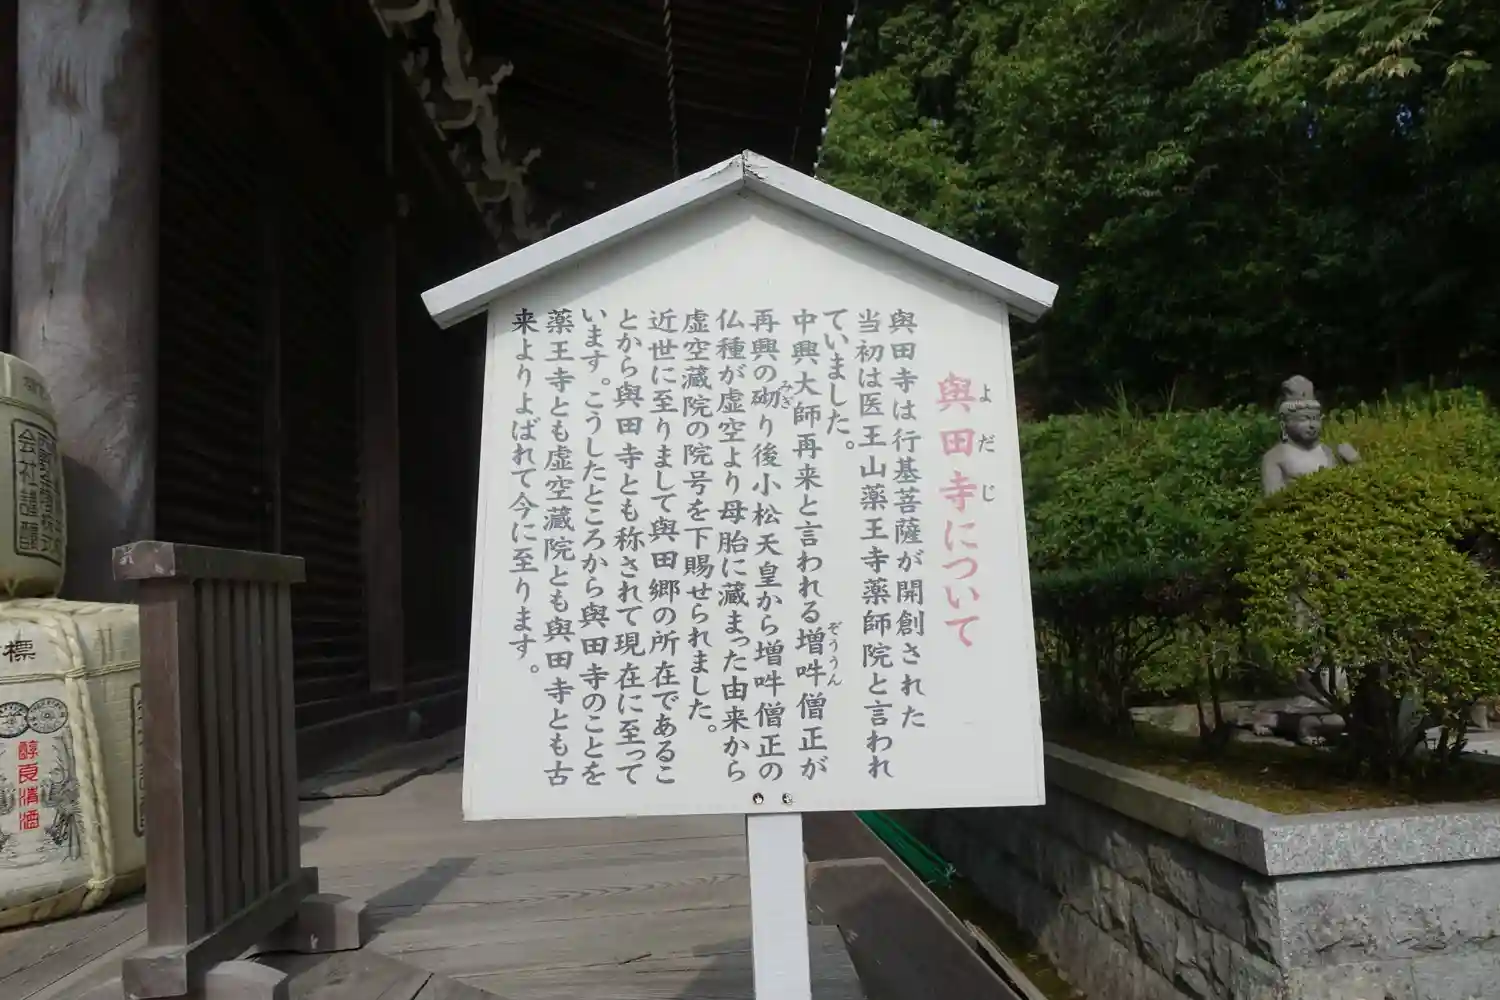 與田寺について
よだじ
與田寺は行基菩薩が開創された
当初は医王山薬王寺薬師院と言われ
ていました。
中興大師再来と言われる増吽僧正が
ぞううん
再興の砌り後小松天皇から増吽僧正の
みぎ
仏種が虚空より母胎に蔵まった由来から
虚空蔵院の院号を下賜せられました。
近世に至りまして與田郷の所在であるこ
とから與田寺とも称されて現在に至って
います。こうしたところから與田寺のことを
薬王寺とも虚空蔵院とも與田寺とも古
来よりよばれて今に至ります。
会社謹醸
標
醇良清酒